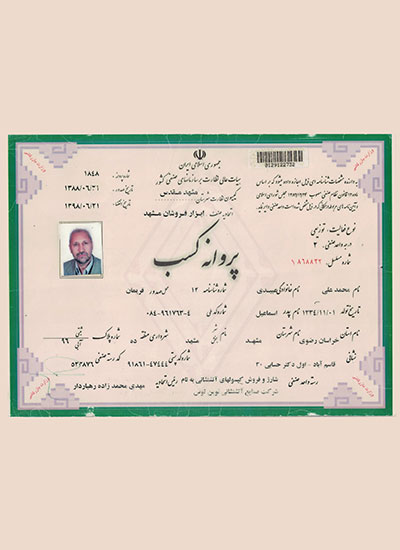 جمهوری اسلامی ایران
هیات عالی نظارت بر سازمانهای صنفی کشور
کمیسیون نظارت شهرستان مشهد مقدس
اتحادیه صنف ابزار فروشان مشهد
شماره پروانه ۱۸۴۸
تاریخ صدور ۱۳۸۸/۰۶/۳۱
تاریخ انقضاء ۱۳۹۸/۰۶/۳۱
0129122702
نوع فعالیت : توزیعی
درجه واحد صنفی ۳
شماره مسلسل
پروانه کسب
نام محمد علی نام خانوادگی شماره شناسنامه ۱۲ محل صدور فریمان
تاریخ تولد ۱۳۳۴/۱۱/۰۱ نام پدر اسماعیل شماره ملی
نام استان خراسان رضوی نام شهرستان مشهد نام بخش مشهد شهرداری منطقه ده شماره پلاک ۹۶
نشانی قاسم آباد - اول دکتر حسابی ۳۰ شماره کد پستی ۹۱۸۶۱-۴۷۴۴۴ کد رسته صنفی
رسته واحد صنفی شارژ و فروش کپسولهای آتشنشانی به نام شرکت صنایع آتشنشانی نوین توس
رئیس اتحادیه مهدی محمد زاده رهباردار